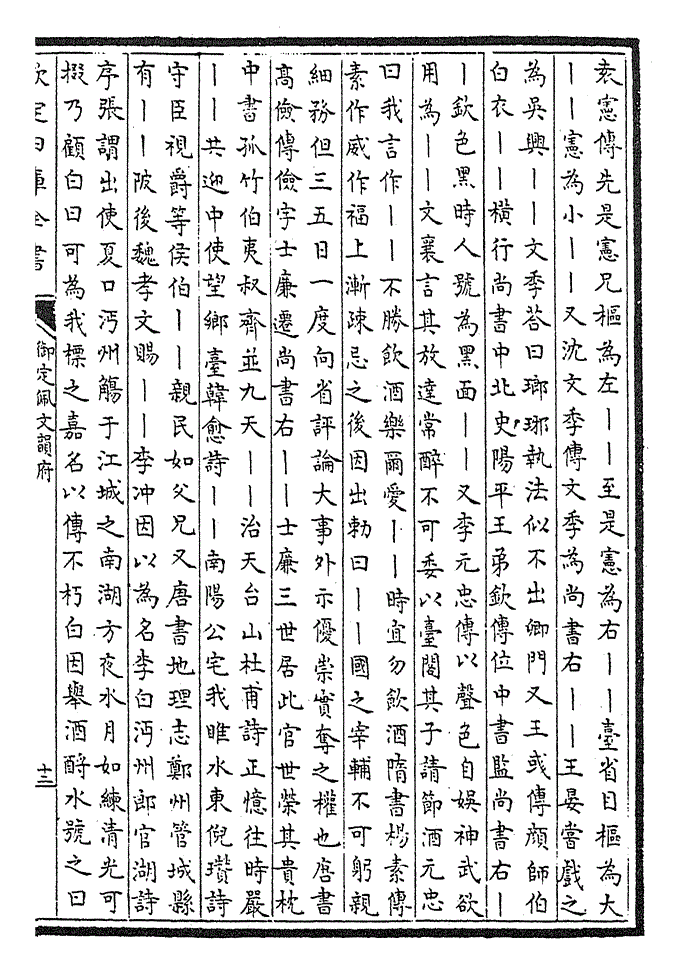 袁憲傳先是憲兄樞為左丨丨至是憲為右丨丨臺省目樞為大
丨丨憲為小丨丨又沈文季傳文季為尚書右丨丨王晏嘗戲之
為吳興丨丨文季荅曰瑯琊執法似不出卿門又王彧傳顔師伯
白衣丨丨橫行尚書中北史陽平王弟欽傳位中書監尚書右丨
丨欽色黑時人號為黑面丨丨又李元忠傳以聲色自娛神武欲
用為丨丨文襄言其放達常醉不可委以臺閣其子請節酒元忠
曰我言作丨丨不勝飲酒樂爾愛丨丨時宜勿飲酒隋書楊素傳
素作威作福上漸疎忌之後因出勅曰丨丨國之宰輔不可躬親
細務但三五日一度向省評論大事外示優崇實奪之權也唐書
髙儉傳儉字士廉遷尚書右丨丨士廉三世居此官世榮其貴枕
中書孤竹伯夷叔齊並九天丨丨治天台山杜甫詩正憶往時嚴
丨丨共迎中使望鄉臺韓愈詩丨丨南陽公宅我睢水東倪瓚詩
守臣視爵等侯伯丨丨親民如父兄又唐書地理志鄭州管城縣
有丨丨陂後魏孝文賜丨丨李冲因以為名李白沔州郎官湖詩
序張謂出使夏口沔州觴于江城之南湖方夜水月如練清光可
掇乃顧白曰可為我標之嘉名以傳不朽白因舉酒酹水號之曰
欽定四庫全書
御定佩文韻府
十三